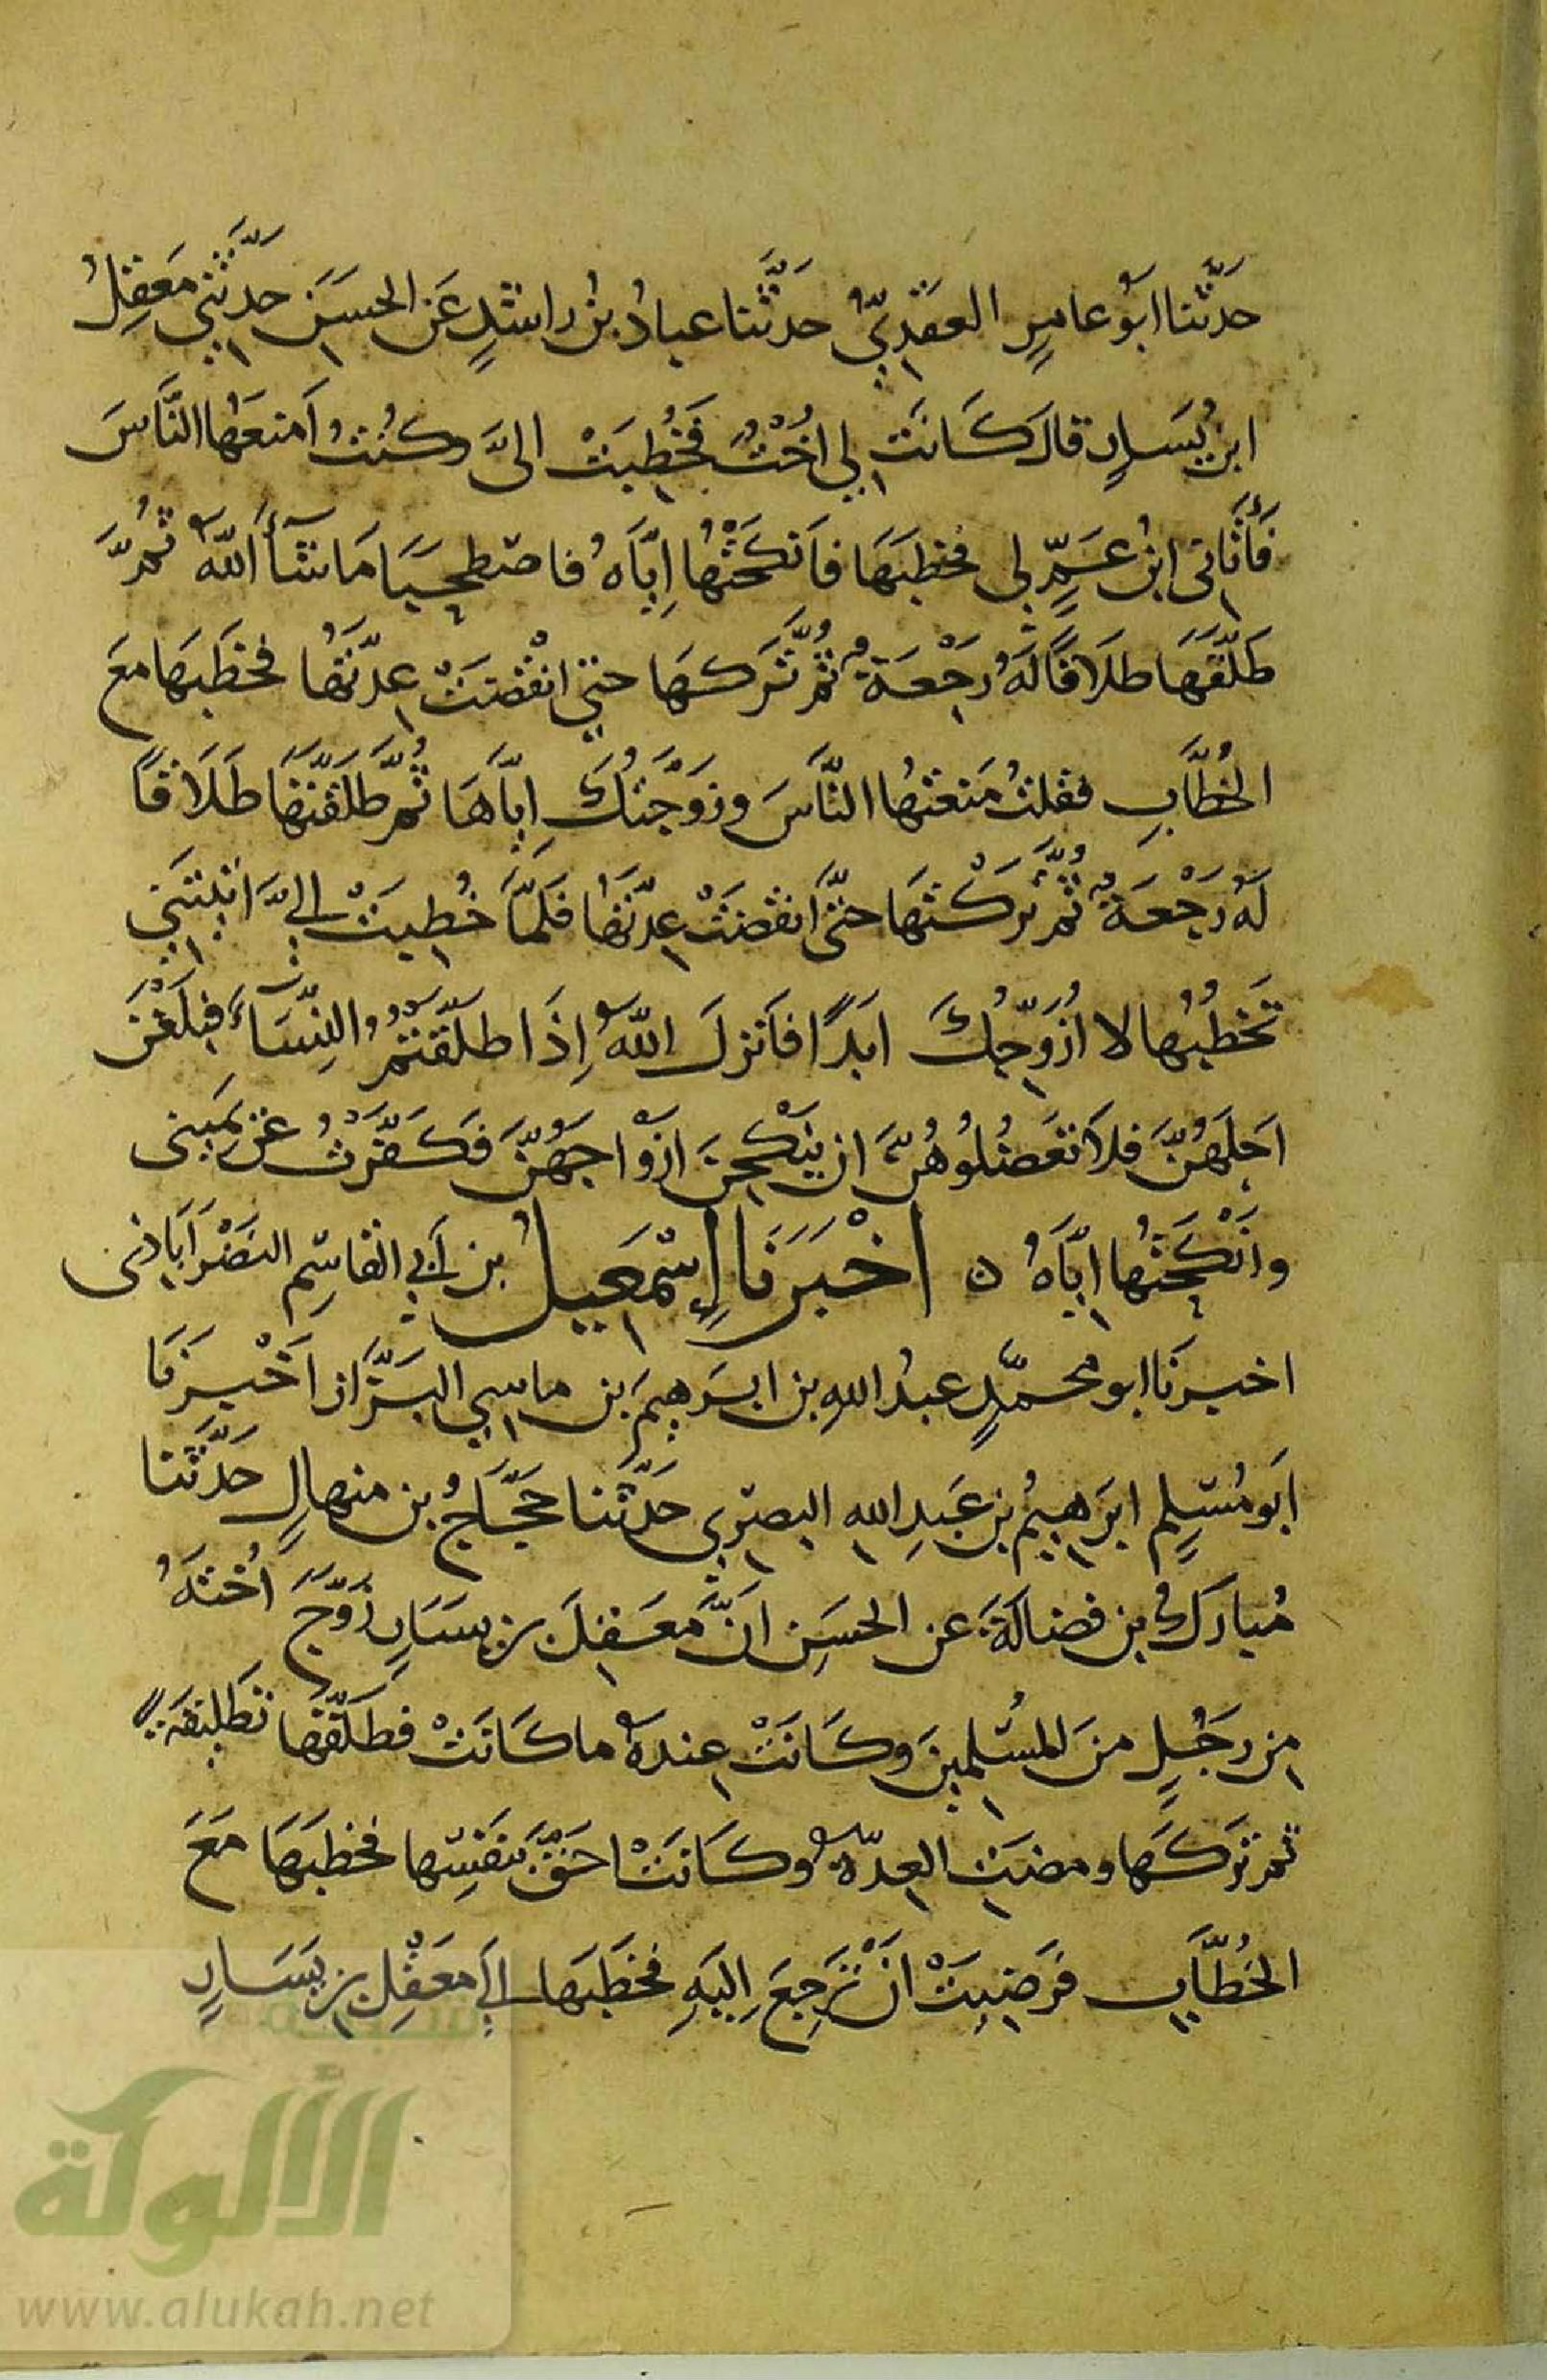 حَدَّثَنَا ابَوُ عامِرٍ العَقَدِيّ حَدَّثَنا عبادُ بنُ راشدٍ عَن الحسَنِ حَدَّثَنِي مَعقِلُ
ابن يسَارٍ قالَ كَانَت لِي اُخْتٌ فَخُطِبَتْ الىَّ وكنُتُ اَمنعَهُا النَّاسَ
فَأَتَاني ابنُ عَمٍّ لي فخطبَهَا فاَنكَحْتُهُا اِيَّاهُ فاصْطحَبَا مَا شَآءَ اللّهُ ثُمَّ
طَلَّقَهَا طلَاقًا لَهُ رَجْعَةٌ ثُمَّ تَرَكهَا حتي انْقضَتْ عِدَّتهُا فخطَبهَا معَ
الخُطَّابِ فقلتُ مَنعتهُا النَّاسَ وزَوَّجتُكَ اِيَّاهَا ثُمَّ طَلَّقْتَهَا طَلَاقاً
لَهُ رَجْعَةٌ ثُمَّ تَركْتَهَا حتَّى انقضَتْ عِدّتهَُا فلَمَّا خُطِبَتْ اليَّ اتيْتَنِي
تَخطُبُها لا اُزَوِّجُكَ ابَدًا فاَنزلَ اللّهُ اِذَا طلَّقتمُ النِّسَاءَ فبلَغْنَ
اجَلَهُنَّ فلاَ تعَضُلُوهُنَّ ان ينْكِحنَ ازْوَاجَهُنَّ فَكَفَّرْتُ عَن يَمينى
وانْكَحتُهَا ايَّاهُ ٥ اخْبَرَنَا اِسْمعِيلُ بن اَبي القاسِم النَصْرَاَباذى
اخبرنَا ابو محمّدٍ عبدُ اللهِ بن ابرَهِيمَ بن ماسِي البَزَّاز اَخْبرَنا
ابَو مُسْلِمٍ ابرَهِيمُ بن عَبدِ الله البصْرِي حَدَّثَنا حَجَّاجُ بن منهالٍ حَدَّثَنا
مُبارَكُ بن فضالَةَ عن الحسَنِ انَّ مَعقِلَ بن يسَارٍ زَوَّجَ اُخْتَهُ
مِن رَجُلٍ منَ المسْلمينَ وكَانَتْ عِندهُ ما كَانَتْ فطَلَّقهَا تطَليقةً
ثمر تَركَهَا ومضَتِ العِدّةُ وكَانَتْ احَقَّ بنَفسِها فخطَبَهَا مَعَ
الخُطَّابِ فَرَضِيَتْ انْ تَرجِعَ اِليَهِ فخَطَبَها اليَ معَقِلِ بن يَسَارٍ
شبكة
الألوكة
www.alukah.net